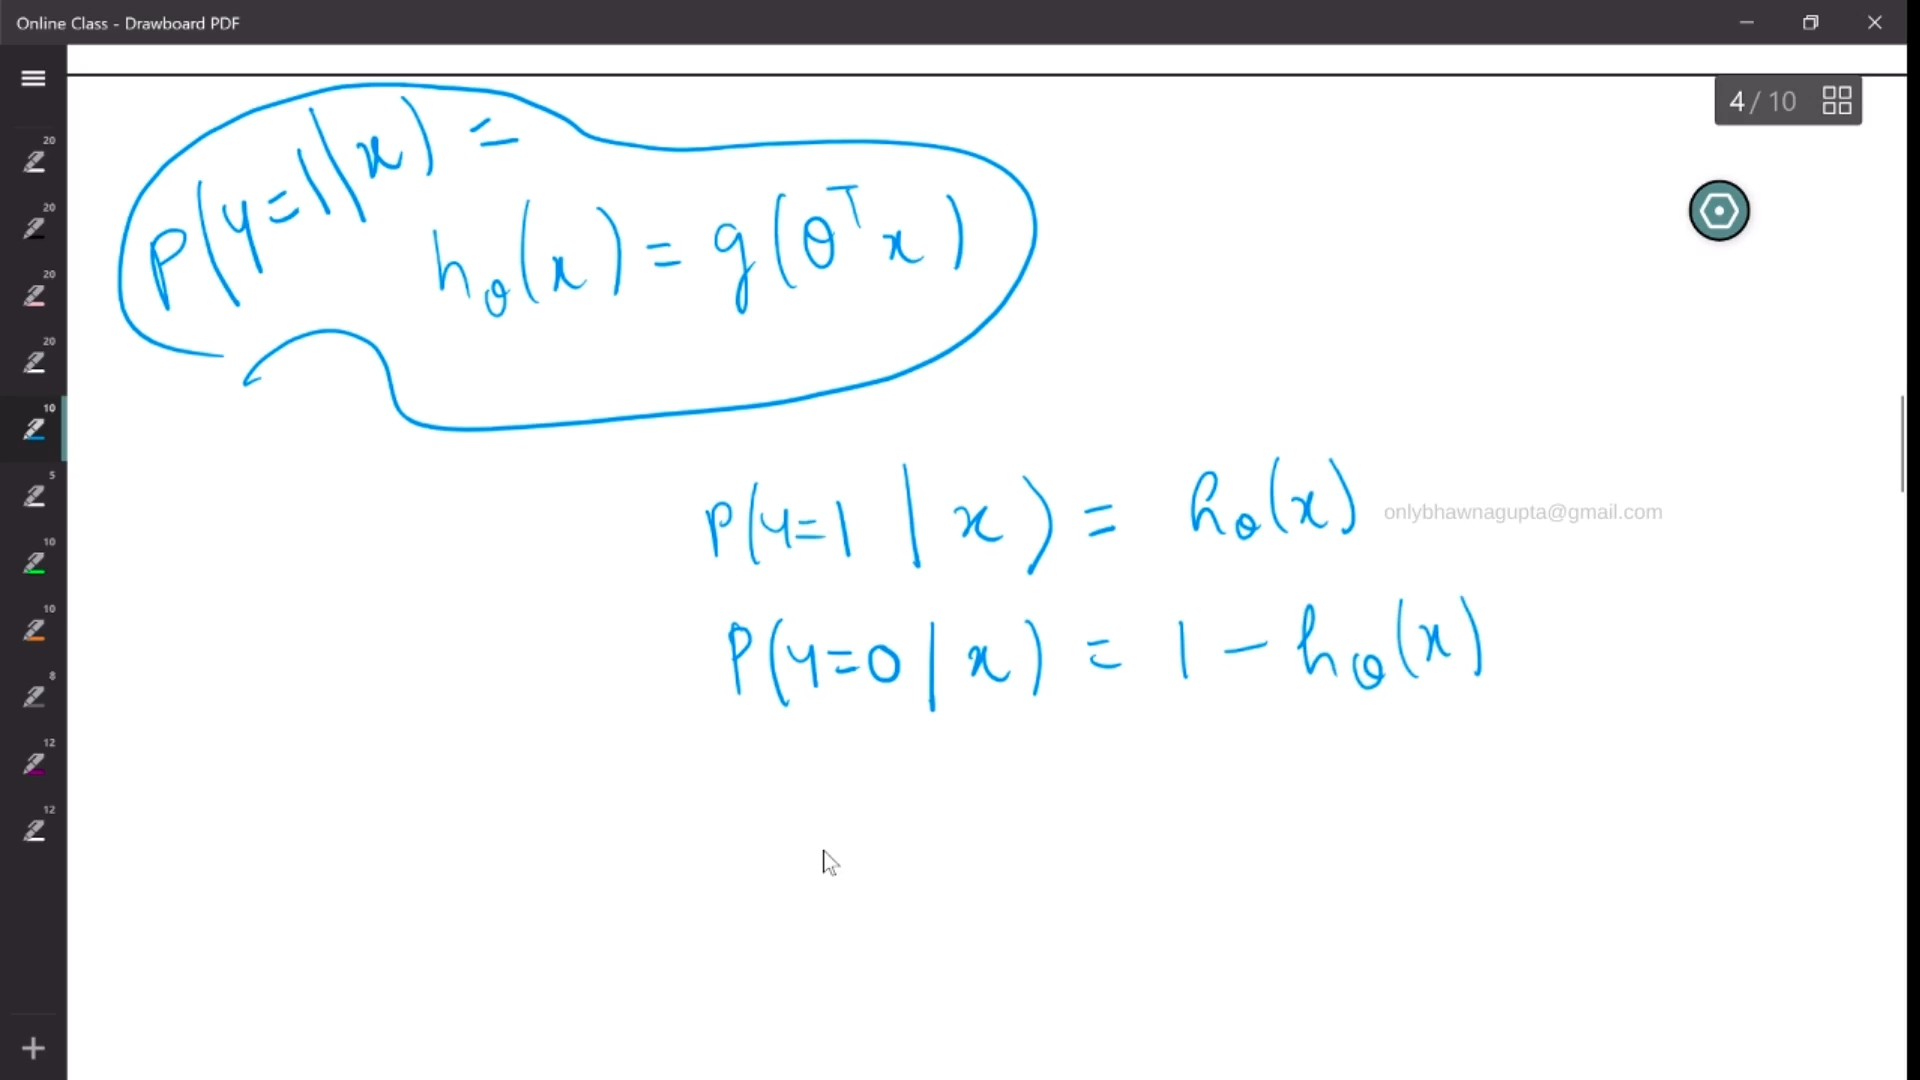 Online Class - Drawboard PDF
4 / 10
20
20
20
20
10
5
10
10
8
12
12
P(y=1|x) =
h_θ(x) = g(θ^T x)
P(y=1 | x) = h_θ(x)
onlybhawnagupta@gmail.com
P(y=0 | x) = 1 - h_θ(x)